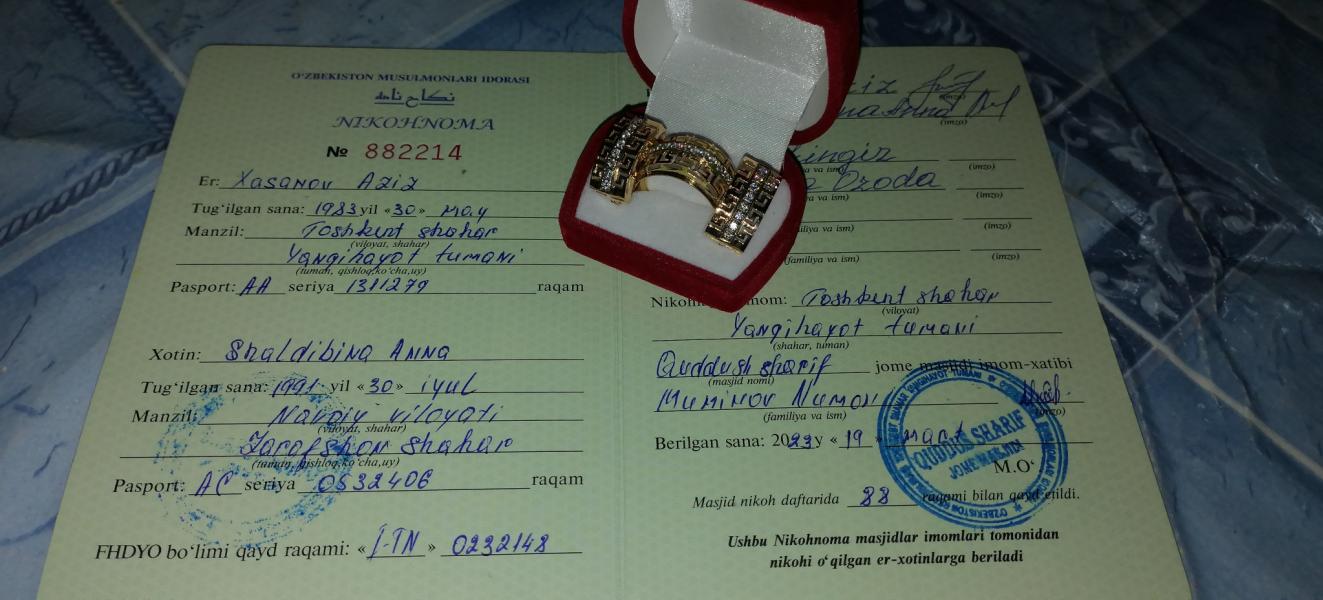 O‘ZBEKISTON MUSULMONLARI IDORASI
نكاح نامه
NIKOHNOMA
№ 882214
Er: Xasanov Aziz
Tug‘ilgan sana: 1983 yil «30» may
Manzil: Toshkent shahar
(viloyat, shahar)
Yangihayot tumani
(tuman, qishloq,ko‘cha,uy)
Pasport: AA seriya 1311279 raqam
Xotin: Shaldibina Anna
Tug‘ilgan sana: 1991 yil «30» iyul
Manzil: Navoiy viloyati
(viloyat, shahar)
Zarafshon shahar
(tuman, qishloq,ko‘cha,uy)
Pasport: AC seriya 0532406 raqam
FHDYO bo‘limi qayd raqami: «I-TN» 0232148
(imzo)
Anna
(imzo)
(imzo)
va ism)
Ozoda (imzo)
va ism)
(imzo)
familiya va ism)
(imzo)
(familiya va ism)
Toshkent shahar
(viloyat)
Yangihayot tumani
(shahar, tuman)
Quddush sharif jome masjidi imom-xatibi
(masjid nomi)
Muminov Numon
(familiya va ism) (imzo)
Berilgan sana: 2023y «19» mart
M.O‘
QUDDUS SHARIF
JOME MASJIDI
Masjid nikoh daftarida 88 raqami bilan qayd etildi.
Ushbu Nikohnoma masjidlar imomlari tomonidan
nikohi o‘qilgan er-xotinlarga beriladi